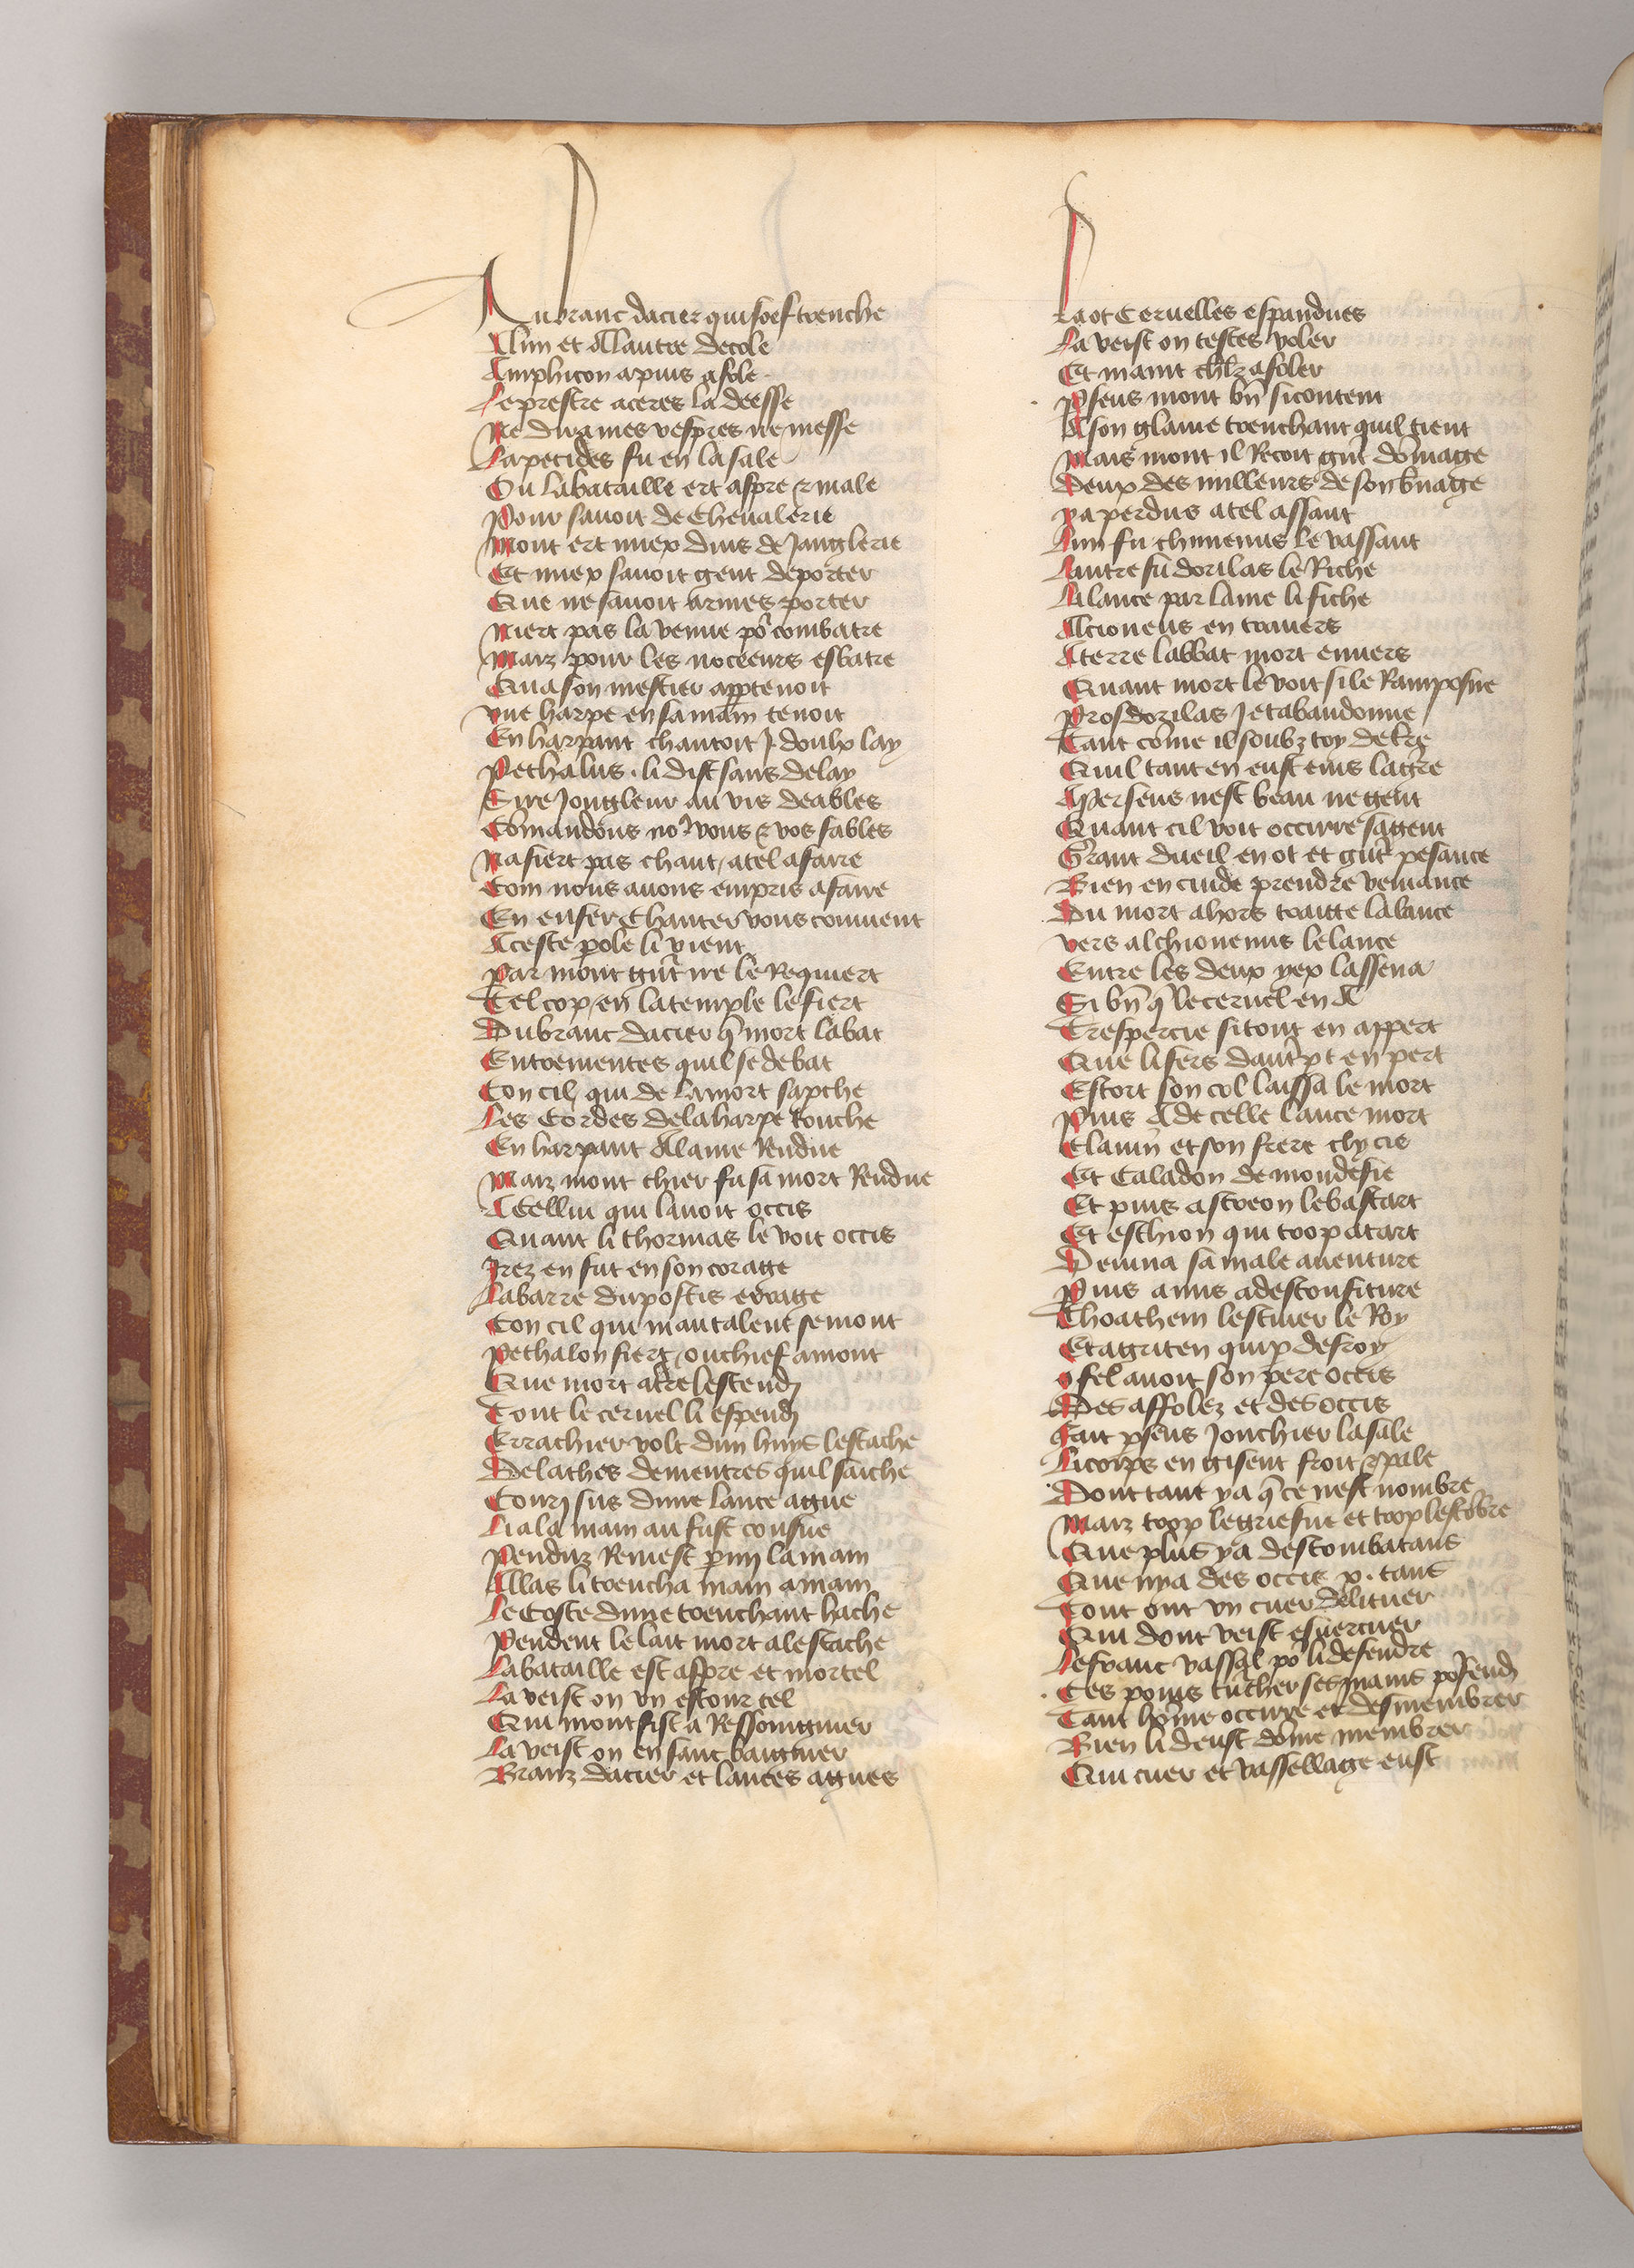 Au branc dacier qui soef trenche
A lun et a lautre decole
Amphicon a puis afole
Le prestre aceres la deesse
Ne dira mes vespres ne messe
Lapecides fu en la sale
Ou la bataille ert aspre & male
Pour savoit de chevalerie
Mout ert miex duis de janglerie
Et miex savoit gent deporter
Que ne savoit armes porter
Niert pas la venue po combatre
Maiz pour les noceeurs esbatre
Qua son mestier appartenoit
Une harpe en sa main tenoit
En harpant chantoit j doulx lay
Pethalus li dist sans delay
Sire jongleur au vis deables
Comandons no vous & vos fables
Nafiert pas chant a tel afaire
Com nous avons empris a faire
En enfer chanter vous convient
A ceste pole li vient
Par mout gnt ire le requiert
Tel cop en la temple le fiert
Du branc dacier q mort labat
Entrementes quil se debat
Con cil qui de la mort sapche
Les cordes de la harpe touche
En harpant a lame rendue
Maiz mout chier fu sa mort rendue
A cellui qui lavoit occis
Quant li thormas le voit occis
Irez en fut en son corage
La barre du postis errage
Con cil qui mautalent semont
Pethalon fiert ou chief amont
Que mort a tre lestendi
Tout le cervel li espendi
Errachier volt dun huys lestache
Delathes dementres quil sache
Couri sus dune lance ague
Li a la main au fust cousue
Penduz remest pmi la main
Allas li trencha main a main
Le coste dune trenchant hache
Pendent le lait mort a lestache
La bataille est aspre et mortel
La veist on vn estour tel
Qui mout fist a ressoingnier
La veist on en sanc baignier
Branz dacier et lances agues
La ot cervelles espandues
La veist on testes voler
Et maint chlr afoler
Pseus mout bn si contient
A son glaive trenchant quil tient
Mais mout il recoit gnt domage
Deux des milleurs de son lnage
Y a perdus a tel assaut
Lun fu chmenus le vassaut
Lautre fu dorilas le riche
La lance par laine li fiche
Alcioneus en travers
A terre labbat mort envers
Quant mort le voit si le ramposne
Pros dozilas je tabandonne
Tant come il soubz toy de tre
Quil tant en eust eins la gre
A perseus nest beau ne gent
Quant cil voit occirre sa gent
Grant dueil en ot et gnt pesance
Bien en cuide prendre veniance
Du mort a hors traitte la lance
Vers alchionenus le lance
Entre les deux yex lassena
Si bn q le cervel en a
Trespercie si tout en appert
Que li fers dautr pt en pert
Estort son col laissa le mort
Puis a de celle lance mort
Clavin et son frere clycie
Et Caladon de mondesie
Et puis astreon le bastart
Et eschion qui trop a tart
Devina sa male aventure
Puis a mis a desconfiture
Thoathem lescuier le roy
Et agriten qui p desroy
O fel avoit son pere occis
Des affolez et des occis
Fait pseus jonchier la sale
Li corps en gisent froit & pale
Dont tant y a q ce nest nombre
Maiz trop le griefue et trop lescobre
Que plus y a des combatans
Que ny a des occis x. tans
Tout ont vn cuer de li tuer
Qui dont veist esvertuer
Le franc vassal po li defendre
Ces poins
Tant home occirre et desmembrer
Bien li deust dome membrer
Qui cuer et vassellage eust